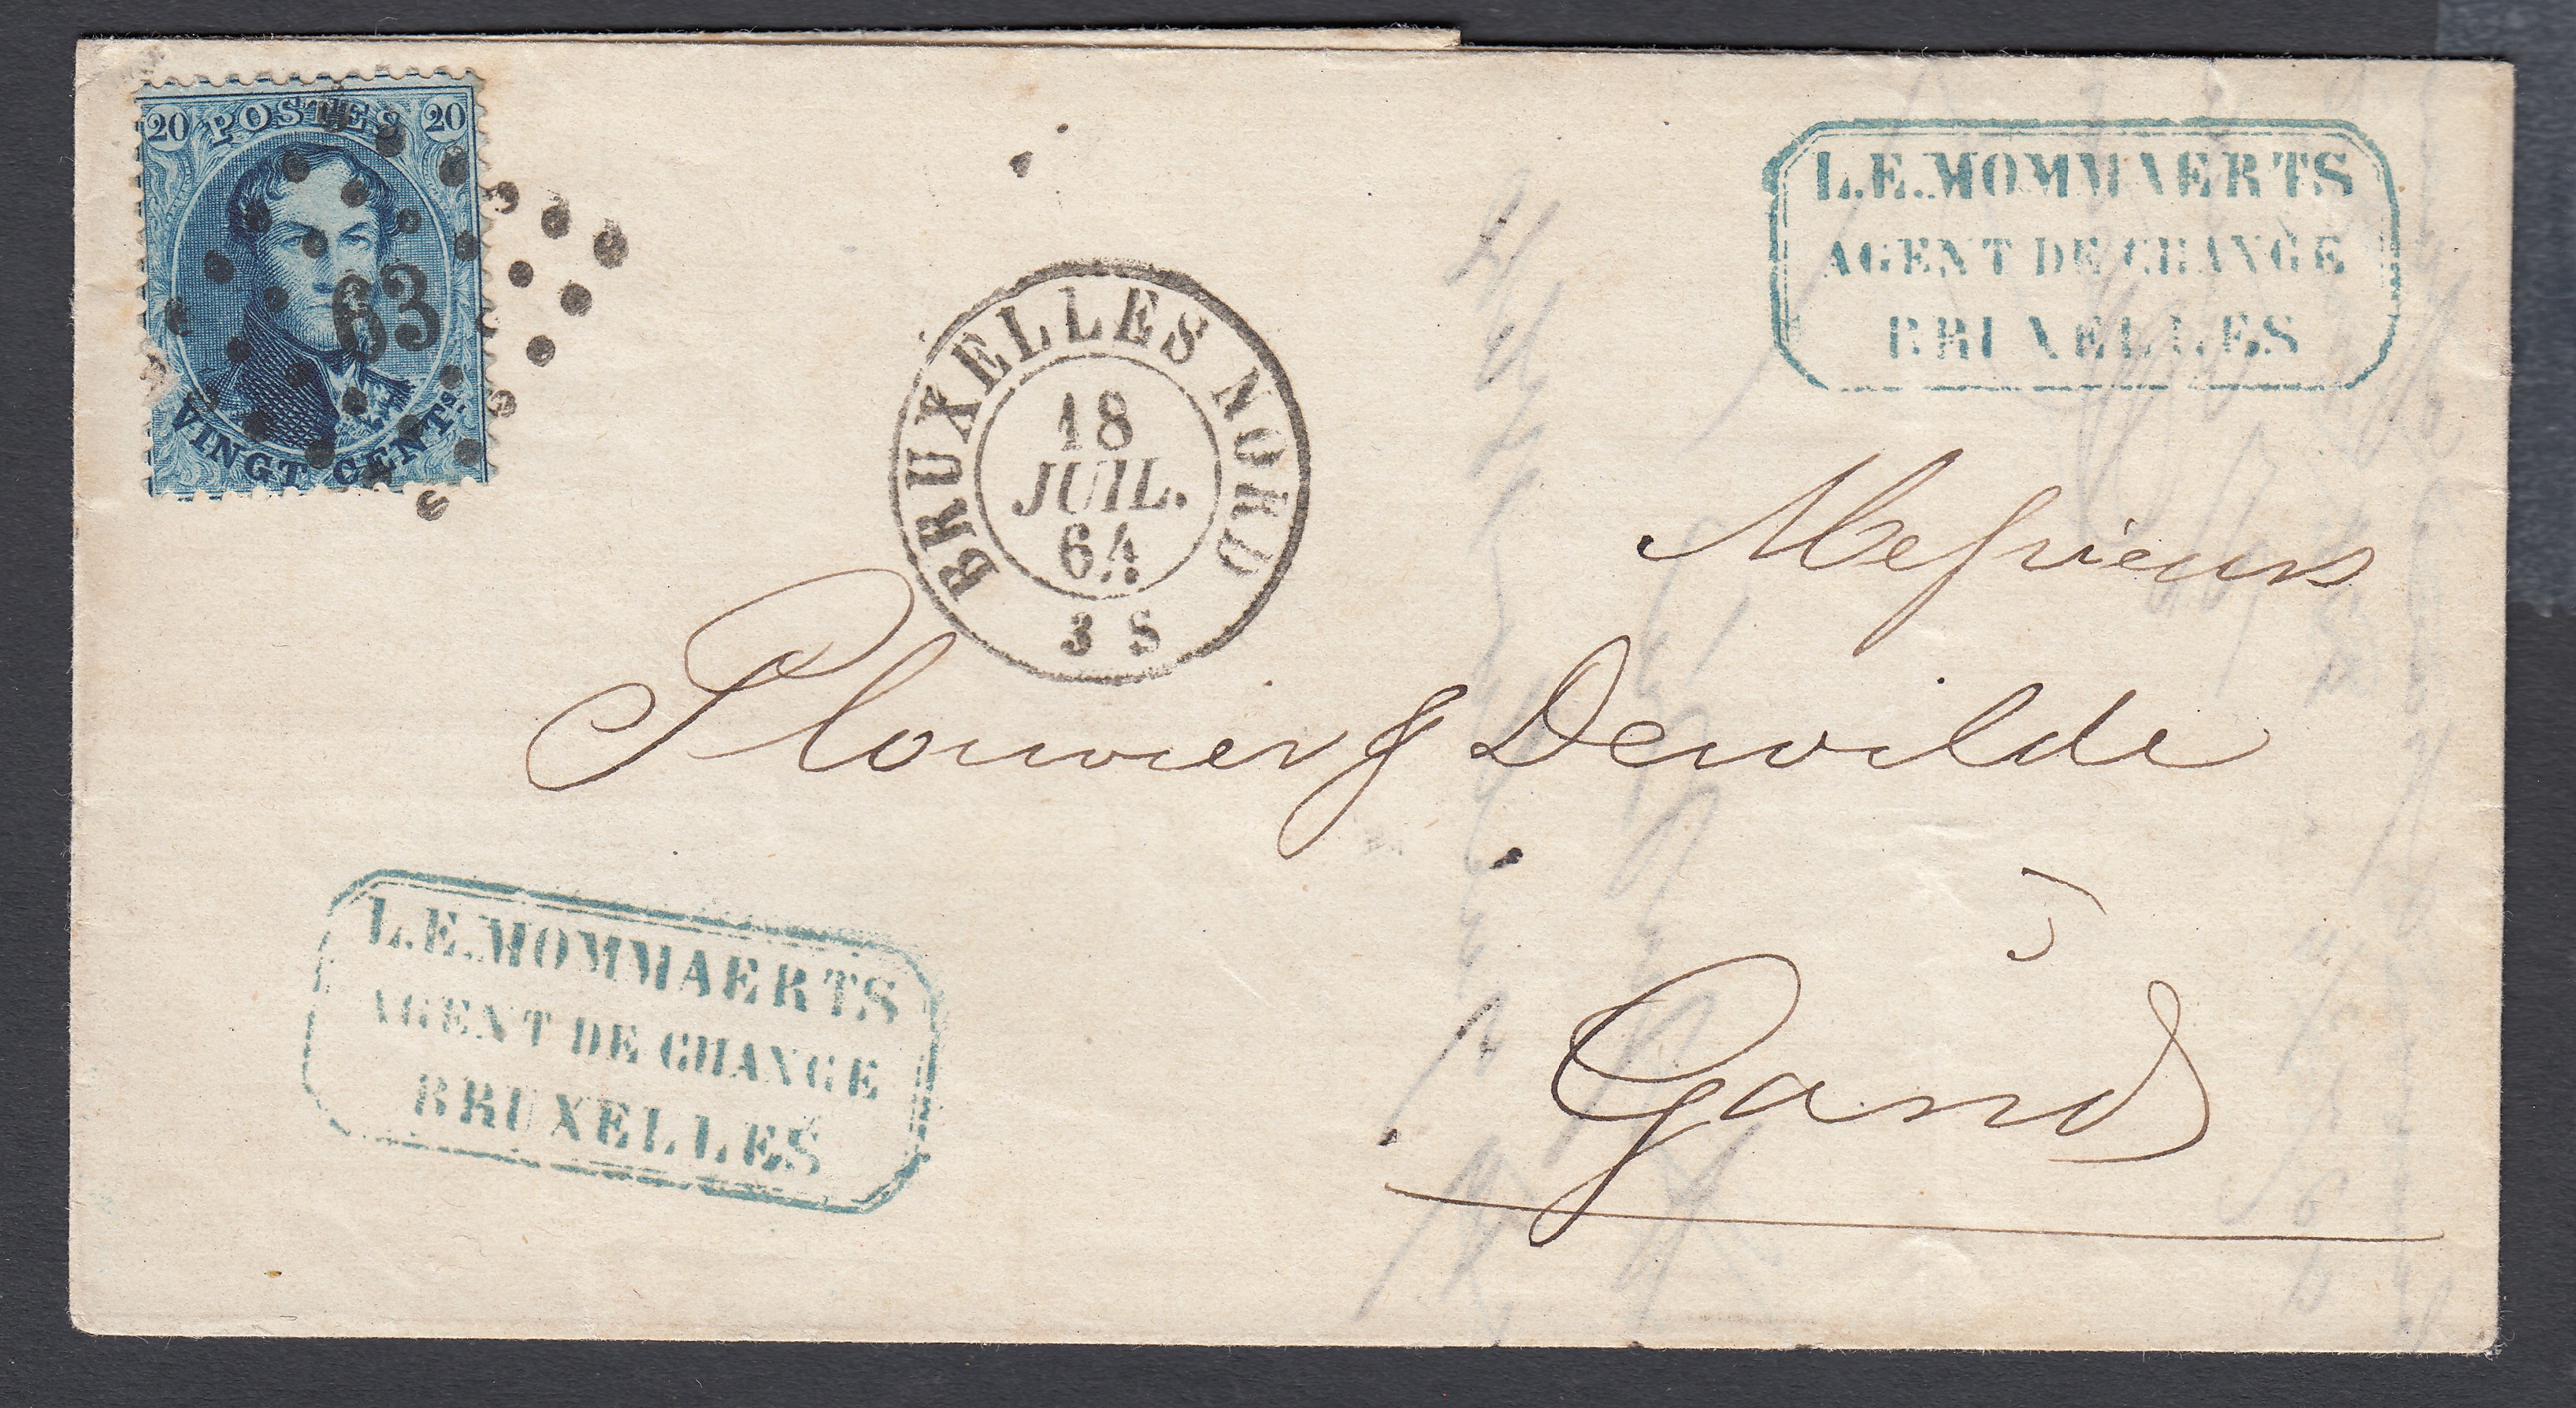 20 POSTES 20
63
VINGT CENTS.
L.E. MOMMAERTS
AGENT DE CHANGE
BRUXELLES
BRUXELLES NORD
18
JUIL.
64
3 S
Messieurs
Plouvier & Dewilde
à
Gand
L.E. MOMMAERTS
AGENT DE CHANGE
BRUXELLES